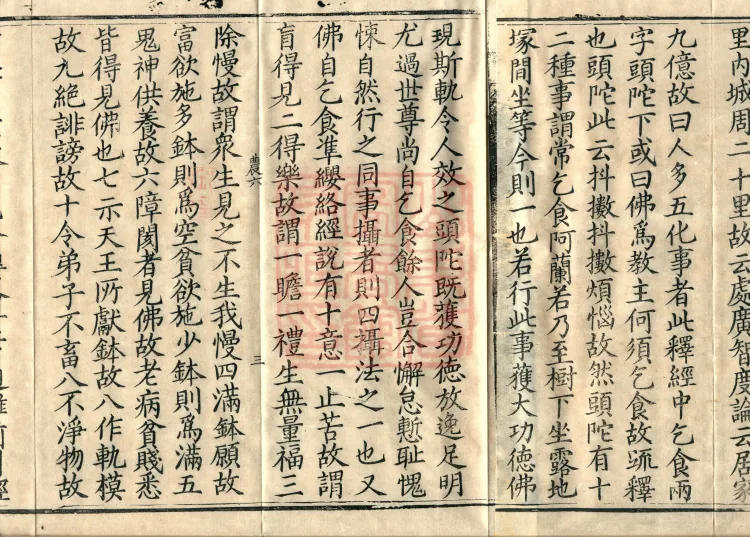 里內城周二十里故云處廣智度論云居家
九億故曰人多五化事者此釋經中乞食兩
字頭陀下或曰佛為教主何須乞食故䟽釋
也頭陀此云抖擻抖擻煩惱故然頭陀有十
二種事謂常乞食阿蘭若乃至樹下坐露地
塚間坐等今則一也若行此事獲大功德佛
現斯軌令人效之頭陀既獲功德放逸足明
尤過世尊尚自乞食餘人豈合懈怠慙恥愧
悚自然行之同事攝者則四攝法之一也又
佛自乞食準纓絡經說有十意一止苦故謂
盲得見二得樂故謂一瞻一禮生無量福三
農六
三
除慢故謂衆生見之不生我慢四滿鉢願故
富欲施多鉢則為空貧欲施少鉢則為滿五
鬼神供養故六障閡者見佛故老病貧賤悉
皆得見佛也七示天王所獻鉢故八作軌模
故九絕誹謗故十令弟子不畜八不淨物故